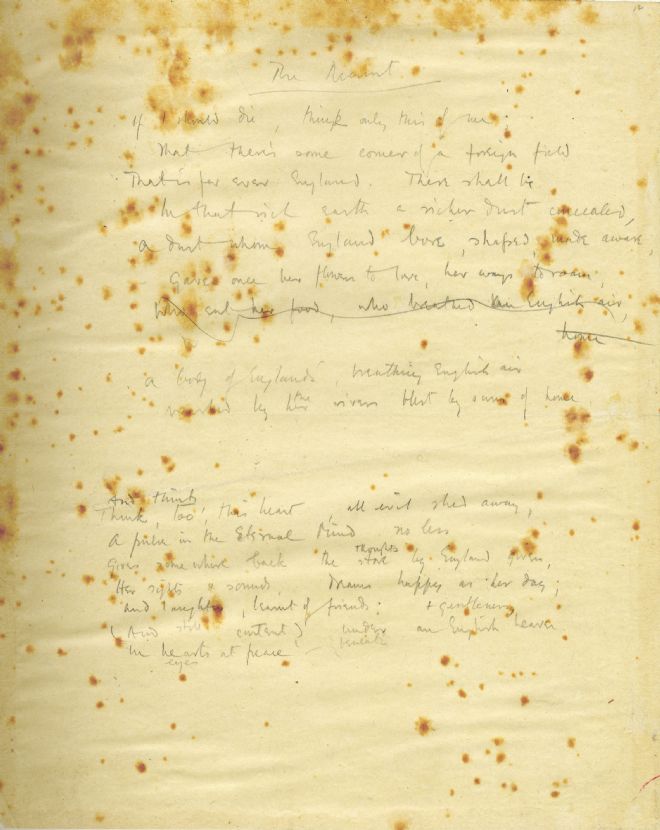 The Recruit
If I should die, think only this of me;
That there's some corner of a foreign field
That is for ever England. There shall be
In that rich earth a richer dust concealed,
A dust whom England bore, shaped, made aware,
Gave, once her flowers to love, her ways to roam,
Who eat her food, who breathed an English air,
home
A body of England's, breathing English air
washed by her the rivers blest by suns of home
And think
Think, too, this heart, all evil shed away,
A pulse in the Eternal Mind no less
thoughts
Gives somewhere back the by England given,
Her sights & sounds. Dreams happy as her day;
and laughter, learnt of friends: & gentleness
(And still content) under an English heaven
In hearts at peace
eyes